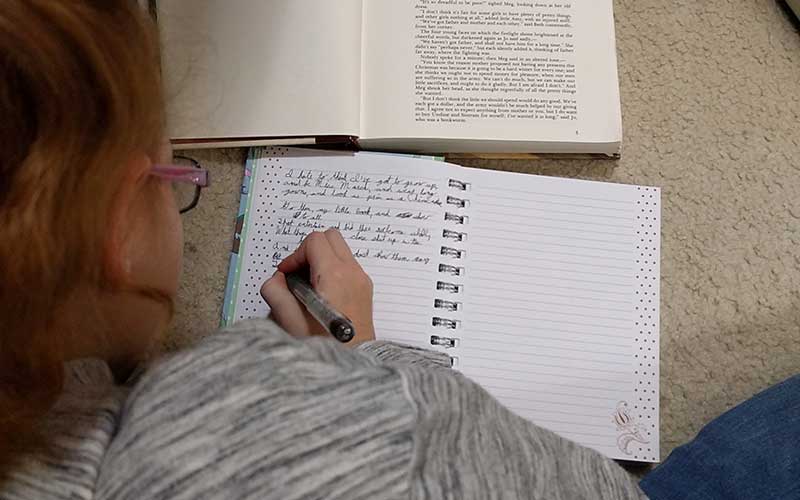 "It's so dreadful to be poor!" sighed Meg, looking down at her old
dress.
"I don't think it's fair for some girls to have plenty of pretty things,
and other girls nothing at all," added little Amy, with an injured sniff.
"We've got father and mother and each other," said Beth contentedly,
from her corner.
The four young faces on which the firelight shone brightened at the
cheerful words, but darkened again as Jo said sadly,—
"We haven't got father, and shall not have him for a long time." She
didn't say "perhaps never," but each silently added it, thinking of father
far away, where the fighting was.
Nobody spoke for a minute; then Meg said in an altered tone,—
"You know the reason mother proposed not having any presents this
Christmas was because it is going to be a hard winter for every one; and
she thinks we ought not to spend money for pleasure, when our men
are suffering so in the army. We can't do much, but we can make our
little sacrifices, and ought to do it gladly. But I am afraid I don't." And
Meg shook her head, as she thought regretfully of all the pretty things
she wanted.
"But I don't think the little we should spend would do any good. We've
each got a dollar, and the army wouldn't be much helped by our giving
that. I agree not to expect anything from mother or you, but I do want
to buy Undine and Sintram for myself; I've wanted it so long," said Jo,
who was a bookworm.
5
I hate to think I've got to grow up,
and be Miss March, and wear long
gowns, and look as prim as a
Go then, my little Book, and show
to all
That entertain and bid thee welcome shall,
What thou close shut up in the
And
show them may